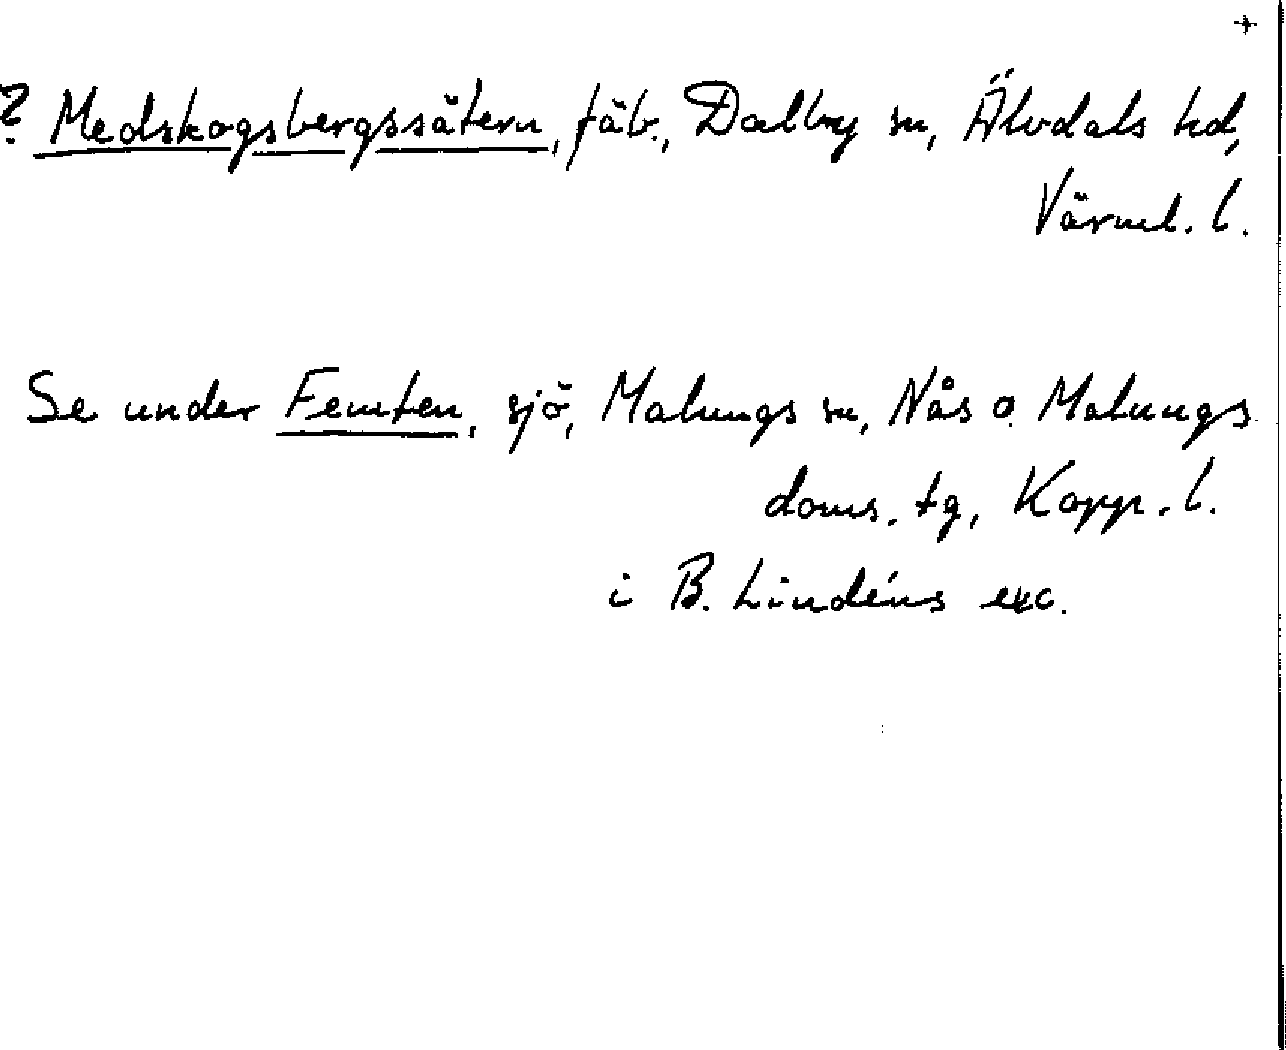 +
? Medskogsbergssätern, fäb., Dalby sn, Älvdals hd,
Värml. l.
Se under Femten, sjö, Malungs sn, Nås o. Malungs
doms. tg, Kopp. l.
i B. Lindéns exc.